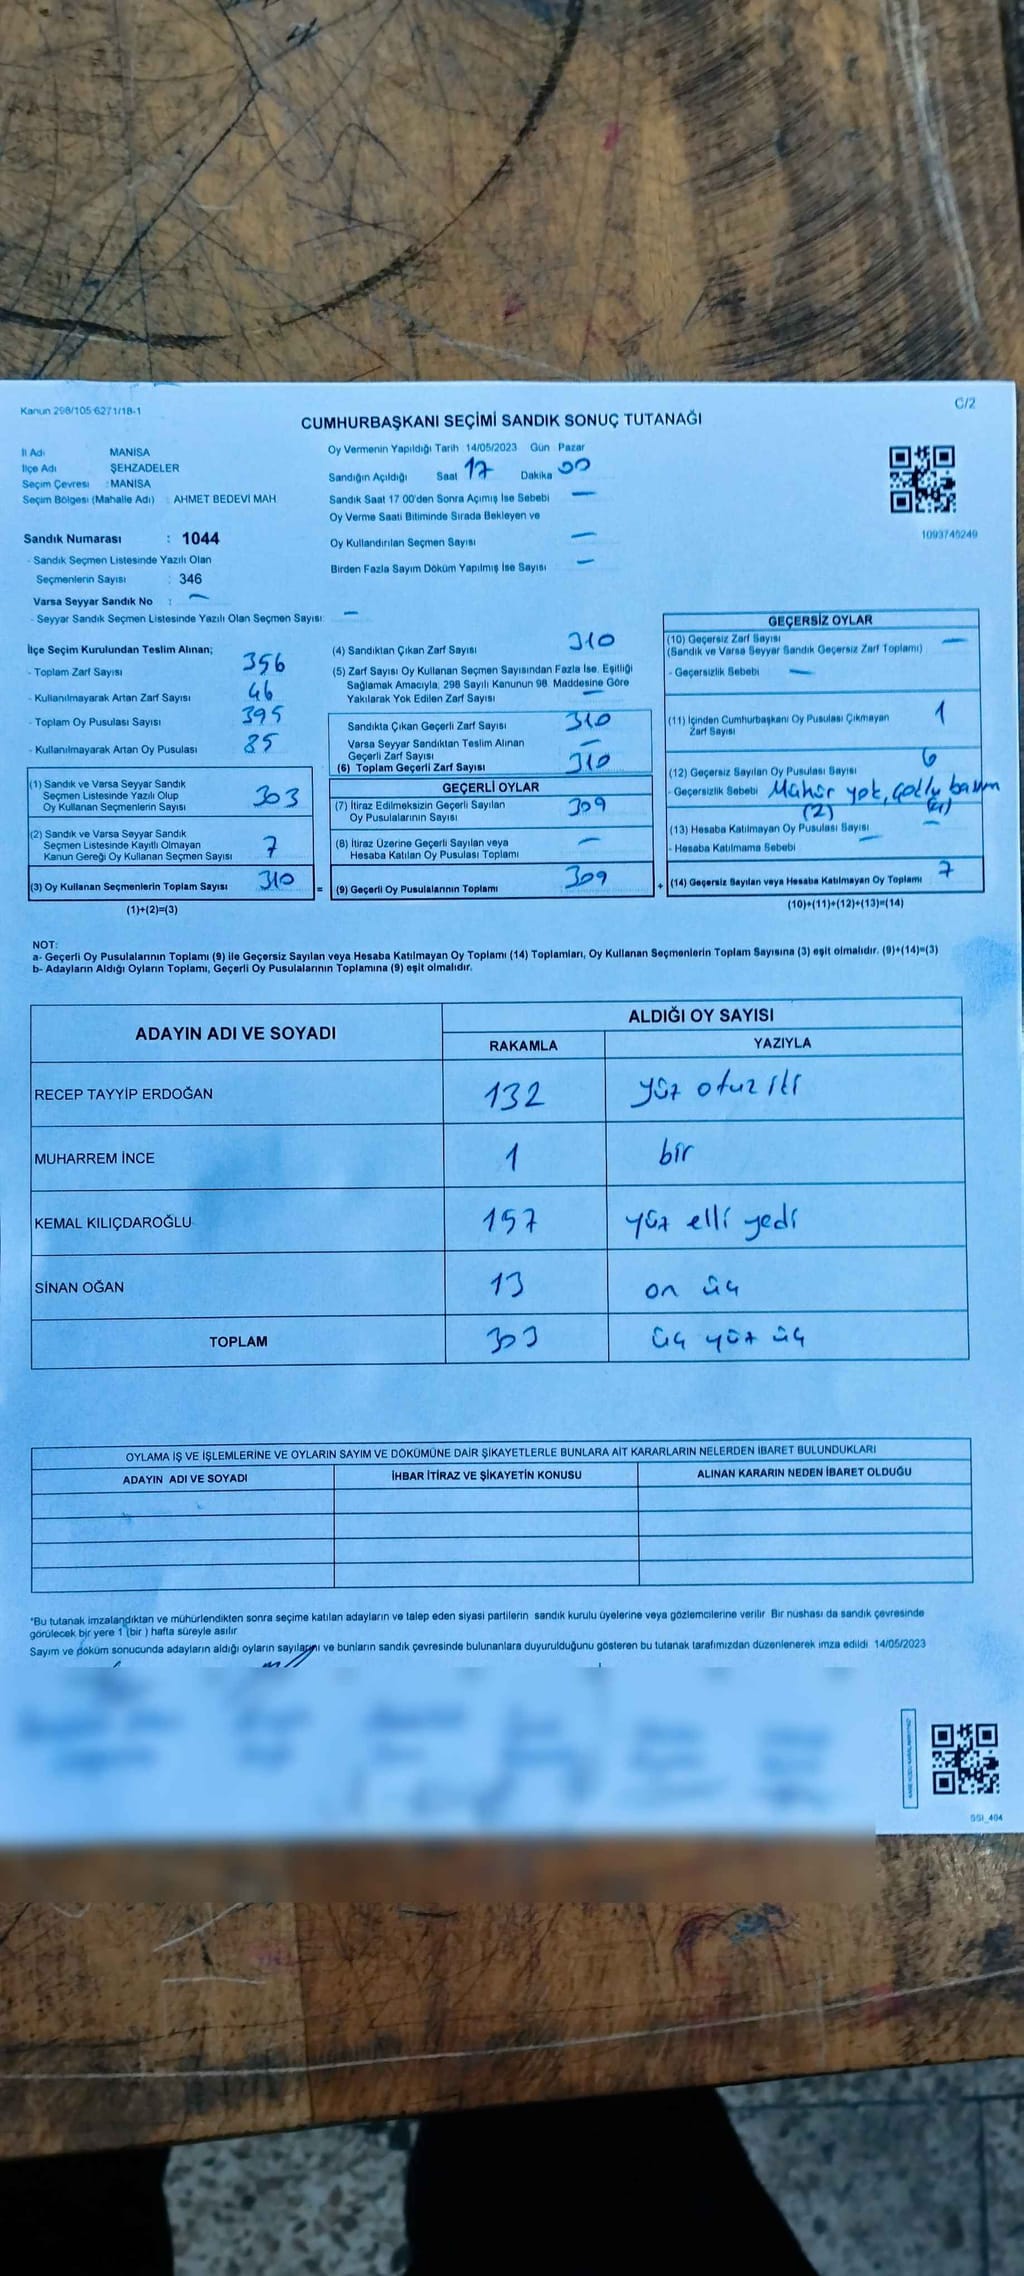 Kanun 298/105 6271/18-1
C/2
CUMHURBAŞKANI SEÇİMİ SANDIK SONUÇ TUTANAĞI
İl Adı MANİSA
İlçe Adı ŞEHZADELER
Seçim Çevresi : MANİSA
Seçim Bölgesi (Mahalle Adı) : AHMET BEDEVİ MAH
Sandık Numarası : 1044
- Sandık Seçmen Listesinde Yazılı Olan
Seçmenlerin Sayısı : 346
Varsa Seyyar Sandık No : —
- Seyyar Sandık Seçmen Listesinde Yazılı Olan Seçmen Sayısı: —
Oy Vermenin Yapıldığı Tarih 14/05/2023 Gün Pazar
Sandığın Açıldığı Saat 17 Dakika 00
Sandık Saat 17 00'den Sonra Açımış İse Sebebi —
Oy Verme Saati Bitiminde Sırada Bekleyen ve
Oy Kullandırılan Seçmen Sayısı —
Birden Fazla Sayım Döküm Yapılmış İse Sayısı —
1093745249
İlçe Seçim Kurulundan Teslim Alınan;
- Toplam Zarf Sayısı 356
- Kullanılmayarak Artan Zarf Sayısı 46
- Toplam Oy Pusulası Sayısı 395
- Kullanılmayarak Artan Oy Pusulası 85
(1) Sandık ve Varsa Seyyar Sandık
Seçmen Listesinde Yazılı Olup
Oy Kullanan Seçmenlerin Sayısı 303
(2) Sandık ve Varsa Seyyar Sandık
Seçmen Listesinde Kayıtlı Olmayan
Kanun Gereği Oy Kullanan Seçmen Sayısı 7
(3) Oy Kullanan Seçmenlerin Toplam Sayısı 310 =
(1)+(2)=(3)
(4) Sandıktan Çıkan Zarf Sayısı 310
(5) Zarf Sayısı Oy Kullanan Seçmen Sayısından Fazla İse, Eşitliği
Sağlamak Amacıyla, 298 Sayılı Kanunun 98. Maddesine Göre
Yakılarak Yok Edilen Zarf Sayısı —
Sandıkta Çıkan Geçerli Zarf Sayısı 310
Varsa Seyyar Sandıktan Teslim Alınan
Geçerli Zarf Sayısı —
(6) Toplam Geçerli Zarf Sayısı 310
GEÇERLİ OYLAR
(7) İtiraz Edilmeksizin Geçerli Sayılan
Oy Pusulalarının Sayısı 309
(8) İtiraz Üzerine Geçerli Sayılan veya
Hesaba Katılan Oy Pusulası Toplamı —
(9) Geçerli Oy Pusulalarının Toplamı 309 +
GEÇERSİZ OYLAR
(10) Geçersiz Zarf Sayısı —
(Sandık ve Varsa Seyyar Sandık Geçersiz Zarf Toplamı)
- Geçersizlik Sebebi —
(11) İçinden Cumhurbaşkanı Oy Pusulası Çıkmayan
Zarf Sayısı 1
(12) Geçersiz Sayılan Oy Pusulası Sayısı 6
- Geçersizlik Sebebi Mühür yok, çoklu basım
(2) (4)
(13) Hesaba Katılmayan Oy Pusulası Sayısı —
- Hesaba Katılmama Sebebi —
(14) Geçersiz Sayılan veya Hesaba Katılmayan Oy Toplamı 7
(10)+(11)+(12)+(13)=(14)
NOT:
a- Geçerli Oy Pusulalarının Toplamı (9) ile Geçersiz Sayılan veya Hesaba Katılmayan Oy Toplamı (14) Toplamları, Oy Kullanan Seçmenlerin Toplam Sayısına (3) eşit olmalıdır. (9)+(14)=(3)
b- Adayların Aldığı Oyların Toplamı, Geçerli Oy Pusulalarının Toplamına (9) eşit olmalıdır.
ADAYIN ADI VE SOYADI ALDIĞI OY SAYISI
RAKAMLA YAZIYLA
RECEP TAYYİP ERDOĞAN 132 yüz otuz iki
MUHARREM İNCE 1 bir
KEMAL KILIÇDAROĞLU 157 yüz elli yedi
SİNAN OĞAN 13 on üç
TOPLAM 303 üç yüz üç
OYLAMA İŞ VE İŞLEMLERİNE VE OYLARIN SAYIM VE DÖKÜMÜNE DAİR ŞİKAYETLERLE BUNLARA AİT KARARLARIN NELERDEN İBARET BULUNDUKLARI
ADAYIN ADI VE SOYADI İHBAR İTİRAZ VE ŞİKAYETİN KONUSU ALINAN KARARIN NEDEN İBARET OLDUĞU
*Bu tutanak imzalandıktan ve mühürlendikten sonra seçime katılan adayların ve talep eden siyasi partilerin sandık kurulu üyelerine veya gözlemcilerine verilir Bir nüshası da sandık çevresinde
görülecek bir yere 1 (bir ) hafta süreyle asılır
Sayım ve döküm sonucunda adayların aldığı oyların sayılarını ve bunların sandık çevresinde bulunanlara duyurulduğunu gösteren bu tutanak tarafımızdan düzenlenerek imza edildi 14/05/2023